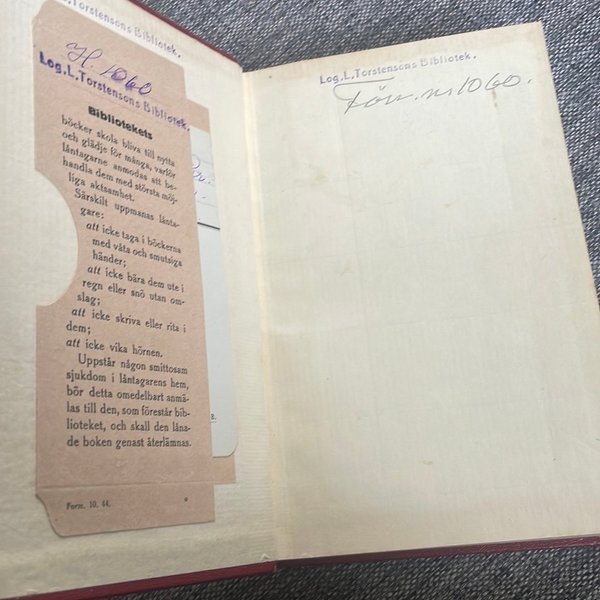 Torstensons Bibliotek.
H. 1060
Log. L. Torstensons Bibliotek.
Bibliotekets
böcker skola bliva till nytta
och glädje för många, varför
låntagarne anmodas att be-
handla dem med största möj-
liga aktsamhet.
Särskilt uppmanas lånta-
gare:
att icke taga i böckerna
med våta och smutsiga
händer;
att icke bära dem ute i
regn eller snö utan om-
slag;
att icke skriva eller rita i
dem;
att icke vika hörnen.
Uppstår någon smittosam
sjukdom i låntagarens hem,
bör detta omedelbart anmä-
las till den, som förestår bib-
lioteket, och skall den låna-
de boken genast återlämnas.
Form. 10, 44.
Log. L. Torstensons Bibliotek.
nr 1060.